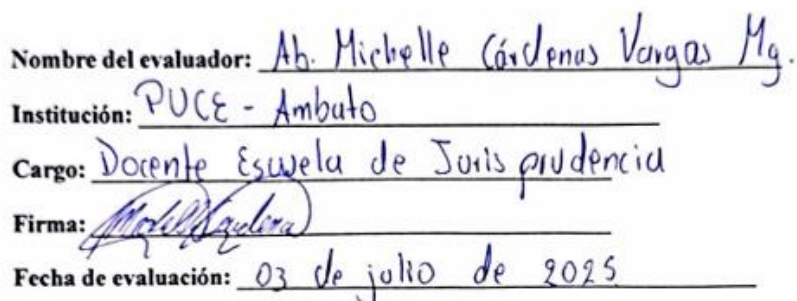 Nombre del evaluador: Ab. Michelle Cárdenas Vargas Mg.
Institución: PUCE - Ambato
Cargo: Docente Escuela de Jurisprudencia
Firma:
Fecha de evaluación: 03 de julio de 2025